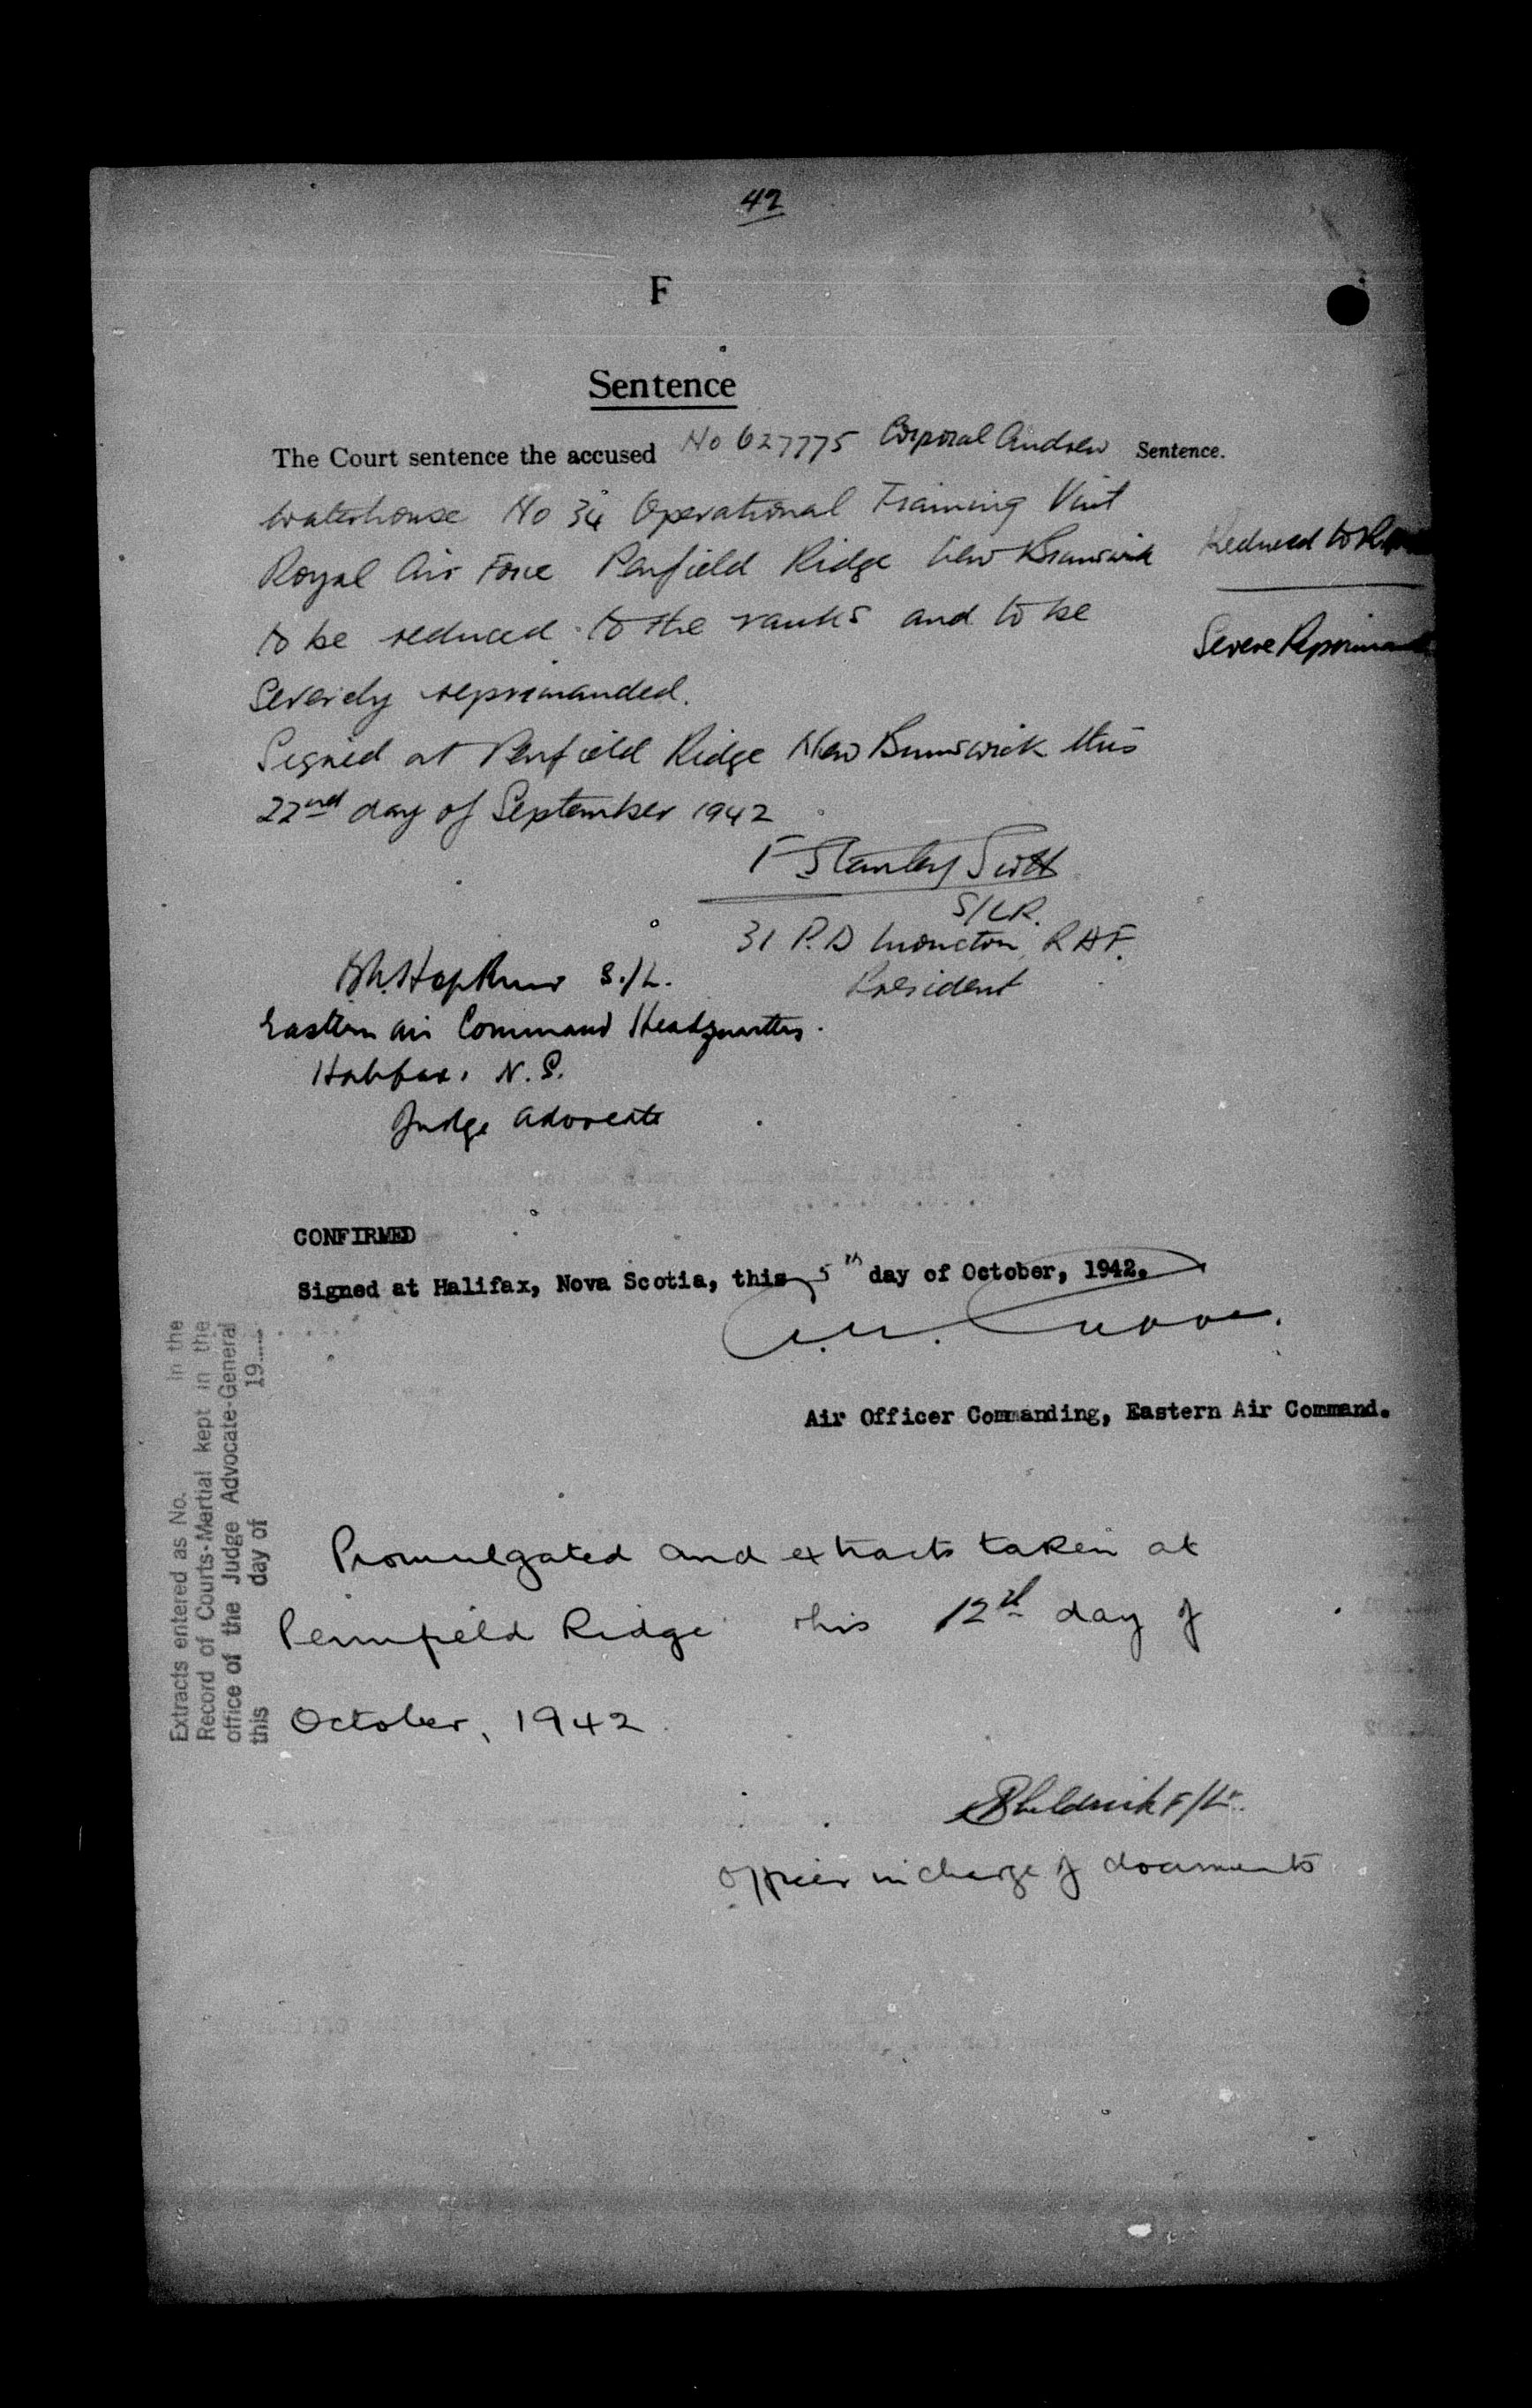 42
F
Sentence
The Court sentence the accused No 627775 Corporal Andrew Sentence.
Waterhouse No 34 Operational Training Unit
Royal Air Force Penfield Ridge New Brunswick Reduced to
to be reduced to the ranks and to be
Severe
Severely reprimanded.
Signed at Penfield Ridge New Brunswick this
22nd day of September 1942
F Stanley Scott
S/LR.
31 P.D Moncton, RAF.
President
Hopkins S./L.
Eastern Air Command Headquarters.
Halifax, N.S.
Judge Advocate
CONFIRMED
Signed at Halifax, Nova Scotia, this 5th day of October, 1942.
Air Officer Commanding, Eastern Air Command.
Extracts entered as No. in the
Record of Courts-Martial kept in the
office of the Judge Advocate-General
this day of 19.....
Promulgated and extracts taken at
Pennfield Ridge this 12th day of
October, 1942.
F/Lt.
Officer in charge of documents